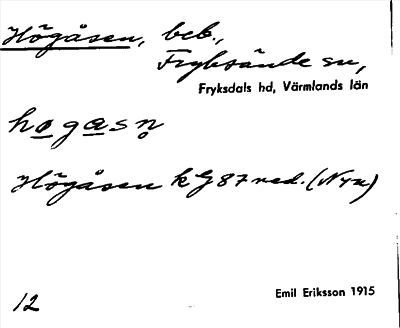 Högåsen, beb.,
Fryksände sn,
Fryksdals hd, Värmlands län
hogasn
Högåsen k G 87 ned. (Nyn)
12
Emil Eriksson 1915